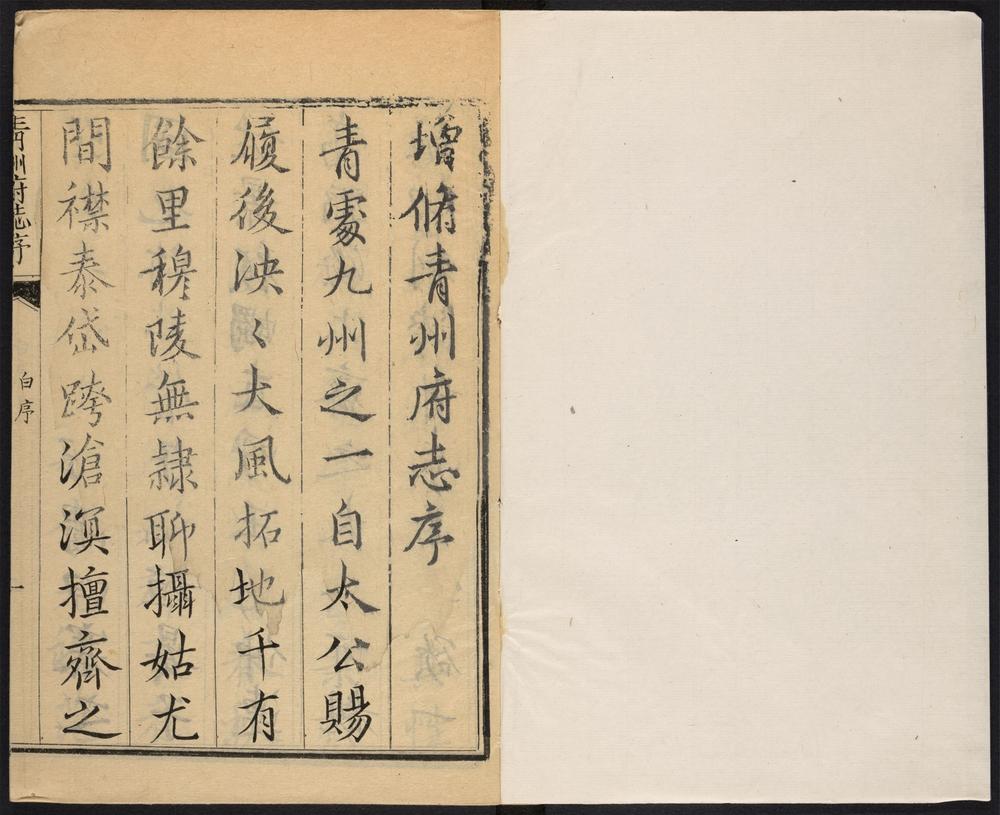 增脩青州府志序
青處九州之一自太公賜
履後泱〻大風拓地千有
餘里穆陵無隷聊攝姑尤
間襟泰岱跨滄溟擅齊之
青州府志序
白序
一